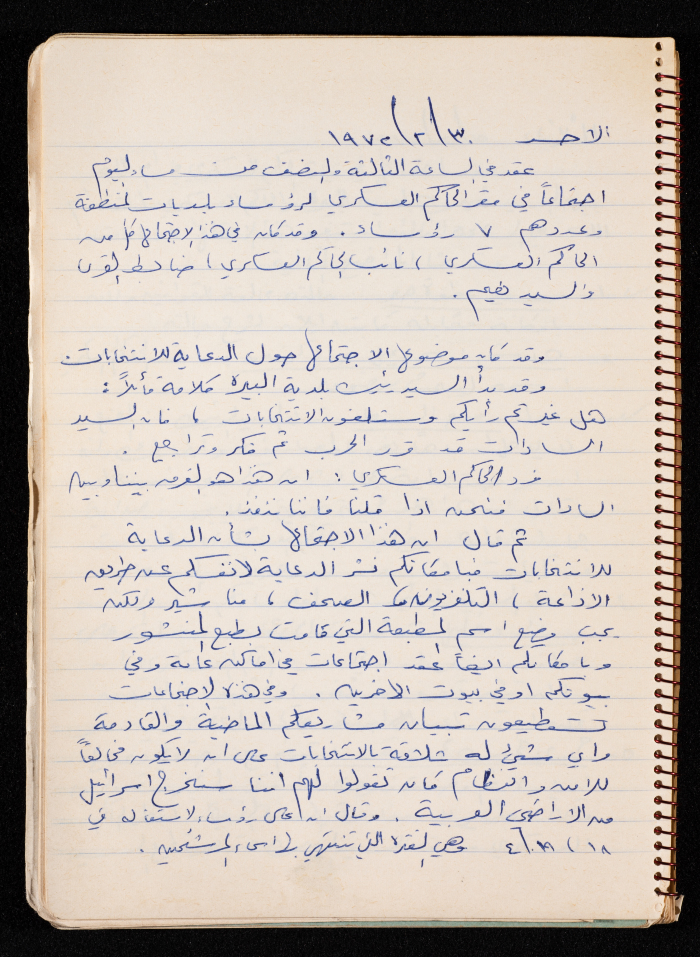 الاحد ٣٠/٢/١٩٧٢
عقد في الساعة الثالثة والنصف من مساء اليوم
اجتماعاً في مقر الحاكم العسكري لرؤساء بلديات المنطقة
وعددهم ٧ رؤساء . وقد كان في هذا الاجتماع كل من
الحاكم العسكري ، نائب الحاكم العسكري ، ضابط القرى
والسيد نعيم .
وقد كان موضوع الاجتماع حول الدعاية للانتخابات .
وقد بدأ السيد رئيس بلدية البيرة كلامة قائلاً :
هل غيرتم رأيكم وستلغون الانتخابات ، فان السيد
السادات قد قرر الحرب ثم فكر وتراجع .
فرد الحاكم العسكري : ان هذا هو الفرق بيننا وبين
السادات فنحن اذا قلنا فاننا ننفذ .
ثم قال ان هذا الاجتماع بشأن الدعاية
للانتخابات فبامكانكم نشر الدعاية لانفسكم عن طريق
الاذاعة ، التلفزيون ، الصحف ، مناشير ولكن
يجب وضع اسم المطبعة التي قامت بطبع المنشور
وبامكانكم ايضاً عقد اجتماعات في اماكن عامة وفي
بيوتكم او في بيوت الآخرين . وفي هذه الاجتماعات
تستطيعون تبيان مشاريعكم الماضية والقادمة
واي شيئ له علاقة بالانتخابات على ان لا يكون مخالفاً
للامن والنظام كان تقولوا لهم اننا سنخرج اسرائيل
من الاراضي العربية . وقال ان على رؤساء الاستقاله في
١٨ ، ١٩/٤ وهي الفترة التي تنتهي اسماء المرشحين .